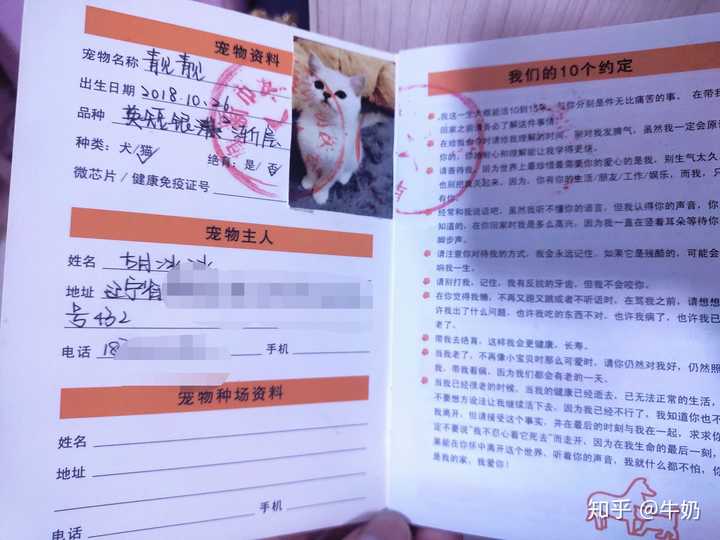 宠物资料
宠物名称 靓靓
出生日期 2018.10.26
品种 英短银渐层
种类：犬/猫 绝育：是/否
微芯片/健康免疫证号
宠物主人
姓名
地址 辽宁省
号432
电话 18 手机
宠物种场资料
姓名
地址
手机
电话
我们的10个约定
我这一生大概能活10到15年，与你分别是件无比痛苦的事。在带我
回家之前请务必了解这件事情！
在给我命令时请给我理解的时间，别对我发脾气，虽然我一定会原谅
你的，你的耐心和理解能让我学得更快。
请善待我，因为世界上最珍惜最需要你的爱心的是我，别生气太久，
也别把我关起来，因为，你有你的生活/朋友/工作/娱乐，而我，只
有你。
经常和我说话吧，虽然我听不懂你的语言，但我认得你的声音，你
知道的，在你回家时我是多么高兴，因为我一直在竖着耳朵等待你
脚步声。
请注意你对待我的方式，我会永远记住，如果它是残酷的，可能会
响我一生。
请别打我，记住，我有反抗的牙齿，但我不会咬你。
在你觉得我懒，不再又跑又跳或者不听话时，在骂我之前，请想想
许我出了什么问题，也许我吃的东西不对，也许我病了，也许我已
老了。
带我去绝育，这样我会更健康、长寿。
当我老了，不再像小宝贝时那么可爱时，请你仍然对我好，仍然照
我，带我看病，因为我们都会有老的一天。
当我已经很老的时候，当我的健康已经逝去，已无法正常的生活，
不要想方设法让我继续活下去，因为我已经不行了，我知道你也不
我离开，但请接受这个事实，并在最后的时刻与我在一起，求求你
定不要说“我不忍心看它死去”而走开，因为在我生命的最后一刻，
果能在你怀中离开这个世界，听着你的声音，我就什么都不怕，你
是我的家，我爱你！
知乎 @牛奶